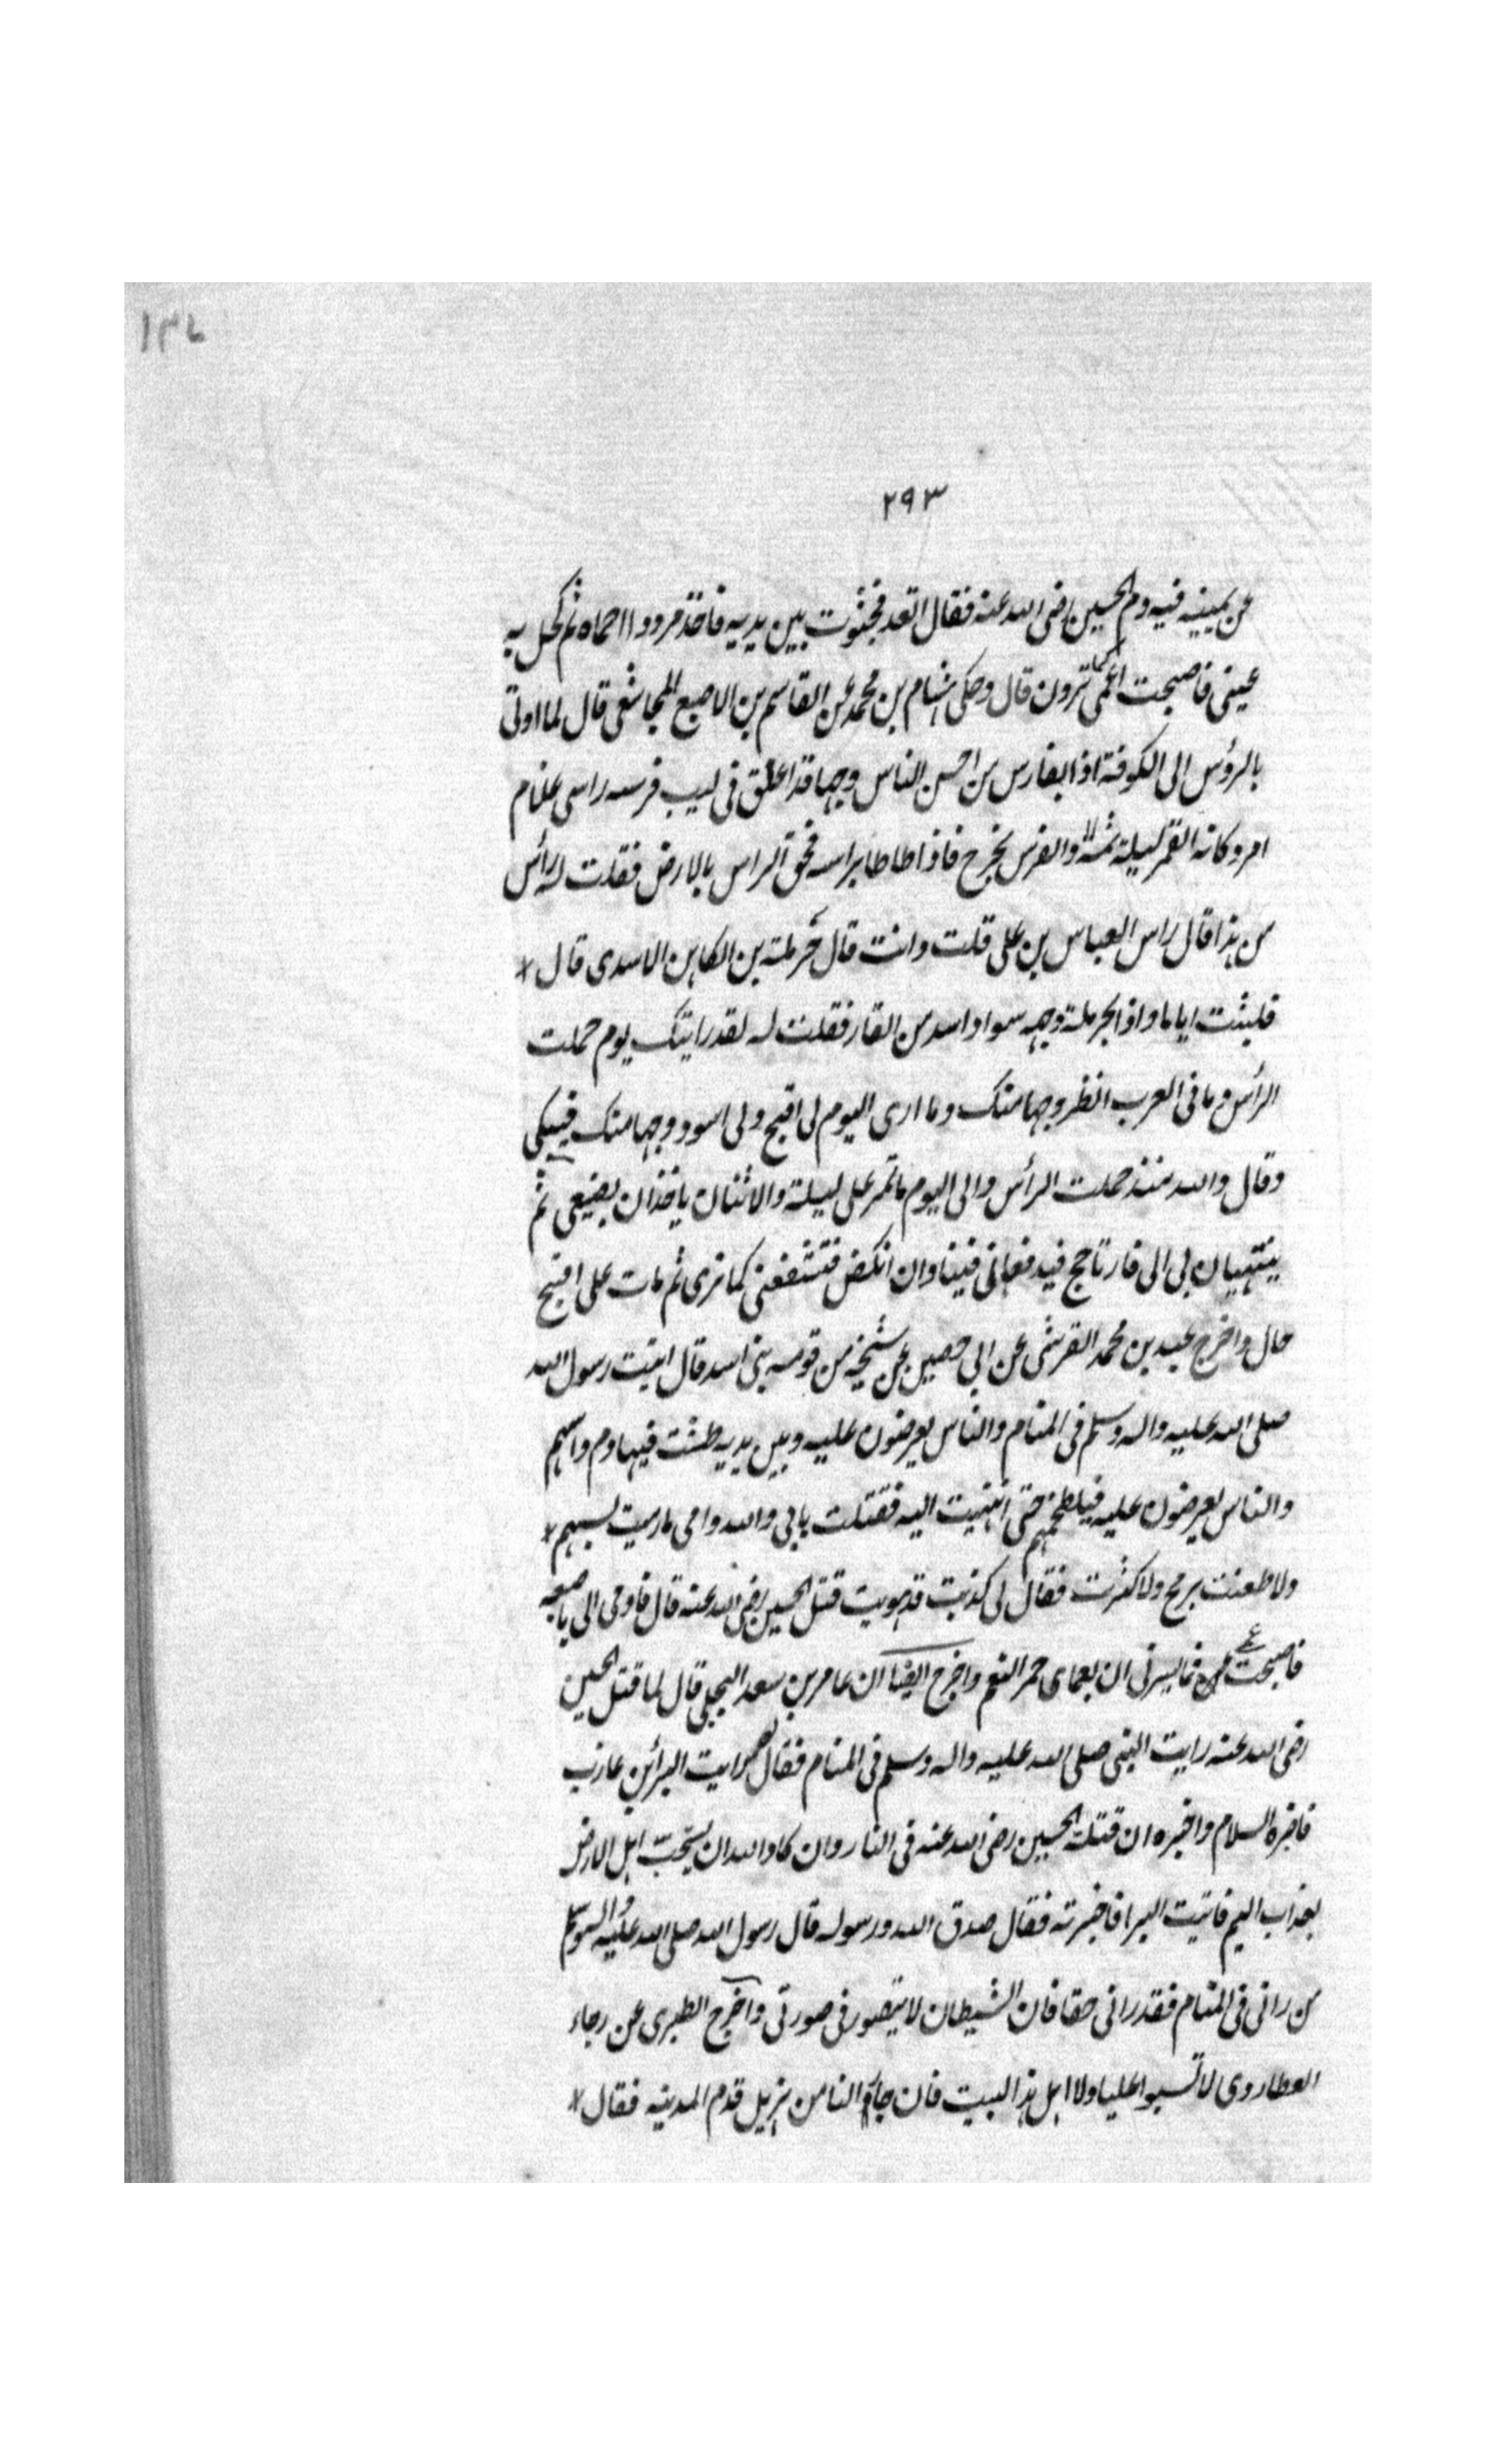 ١٣٧
٢٩٣
عن يمينه فيه دم الحسين رضى الله عنه فقال اقعد فجثوت بين يديه فاخذ مرودا احماه ثم كحل به
عينى فاصبحت اعمى كما ترون قال وحكى هشام بن محمد عن القاسم بن الاصبع المجاشعى قال لما اوتى
بالرؤس الى الكوفة اذا بفارس من احسن الناس وجها قد اعلق فى لبب فرسه راس غلام
امرد كانه القمر ليلة تمه والفرس يخرج فاذا طاطا براسه لحق الراس بالارض فقلت له راس
من هذا قال راس العباس بن على قلت وانت قال حرملة بن الكاهن الاسدى قال
فلبثت اياما واذا بحرملة وجهه سوادا اسد من القار فقلت له لقد رايتك يوم حملت
الراس وما فى العرب انظر وجها منك وما ارى اليوم لى اقبح ولى اسود وجها منك فيبكى
وقال والله منذ حملت الراس والى اليوم ما تمر على ليلة والاثنان ياخذان بضبعى ثم
ينتهيان بى الى نار تاجج فيدفعانى فيها وان انكص فتشفعنى كما ترى ثم مات على اقبح
حال واخرج عبيد بن محمد القرشى عن ابى حصين عن شيخ من قومه بنى اسد قال اتيت رسول الله
صلى الله عليه واله وسلم فى المنام والناس يعرضون عليه وبين يديه طشت فيها دم واسهم
والناس يعرضون عليه فيلطخهم حتى انتهيت اليه فقلت بابى والله وامى ما رميت بسهم
ولا طعنت برمح ولا كثرت فقال لى كذبت قد هويت قتل الحسين رضى الله عنه قال فاومى الى باصبعه
فاصبحت عمى فما يسرنى ان بعماى حمر النعم واخرج ايضا ان عامر بن سعد البجلى قال لما قتل الحسين
رضى الله عنه رايت النبى صلى الله عليه واله وسلم فى المنام فقال رايت البراء بن عازب
فاقره السلام واخبره ان قتلة الحسين رضى الله عنه فى النار وان كاد والله ان يسحت اهل الارض
بعذاب اليم فاتيت البرا فاخبرته فقال صدق الله ورسوله قال رسول الله صلى الله عليه واله وسلم
من رانى فى المنام فقد رانى حقا فان الشيطان لا يتصور فى صورتى واخرج الطبرى عن رجاء
العطاردى لا تسبوا عليا ولا اهل هذا البيت فان جار لنا من هزيل قدم المدينه فقال